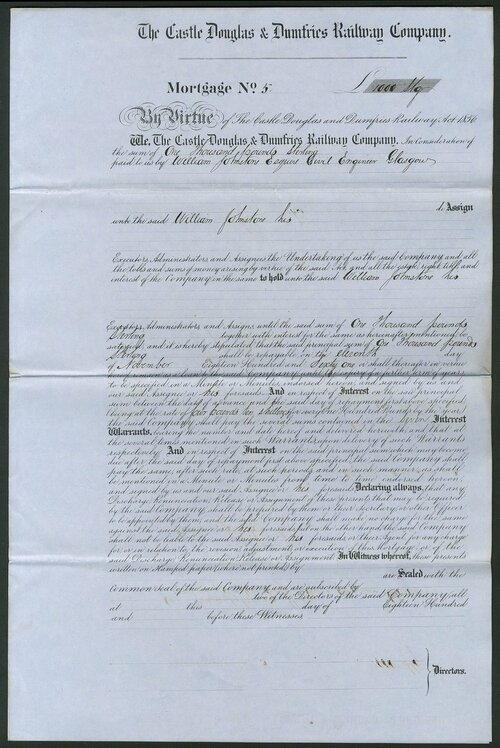 The Castle Douglas & Dumfries Railway Company.
Mortgage No 5 £ 1000 Stg
By Virtue of The Castle Douglas and Dumfries Railway Act 1856
We, The Castle Douglas & Dumfries Railway Company, In Consideration of
the sum of One Thousand pounds Sterling
paid to us by William Johnstone Esquire Civil Engineer Glasgow
do Assign
unto the said William Johnstone his
Executors, Administrators and Assignees the Undertaking of us the said Company and all
the tolls and sums of money arising by virtue of the said Act and all the estate, right, title, and
interest of the Company in the same to hold unto the said William Johnstone his
Executors Administrators and Assigns until the said sum of One Thousand pounds
Sterling together with interest for the same as hereinafter mentioned be
satisfied, and it is hereby stipulated that the said principal sum of One Thousand pounds
Sterling shall be repayable on the eleventh day
of November Eighteen Hundred and Sixty one or shall thereafter
to be specified on a Minute or Minutes endorsed hereon, and signed by us and
our said Assignee or his foresaids. And in respect of Interest on the said principal
sum between the date and the said day of repayment above specified,
(being at the rate of four pounds ten shillings for every One Hundred Pounds by the year,
the said Company shall pay the several sums contained in the Interest
Warrants, bearing the number and date hereof and delivered herewith and that at
the several times mentioned in such Warrants upon delivery of such Warrants
respectively And in respect of Interest on the said principal sum which may become
due after the said day of repayment first above specified, the said Company shall
pay the same, after such rate, at such periods and in such manner, as shall
be mentioned in a Minute or Minutes from time to time endorsed hereon
and signed by us and our said Assignee or his foresaids. Declaring always, that any
Discharge Renunciation Release or Assignment of these presents that may be required
by the said Company, shall be prepared by them or their Secretary or other Officer
to be appointed by them, and the said Company shall make no charge for the same
against the said Assignee or his foresaids, but on the other hand the said Company
shall not be liable to the said Assignee or his foresaids or their Agent for any charge
for or in relation to the revision adjustment or execution of this Mortgage or of the
said Discharge Renunciation Release or Assignment. In Witness whereof, these presents
written on stamped paper (where not printed) by
are Sealed with the
Common Seal of the said Company and are subscribed by
two of the Directors of the said Company, all
at this day of Eighteen Hundred
and before these Witnesses
Directors.